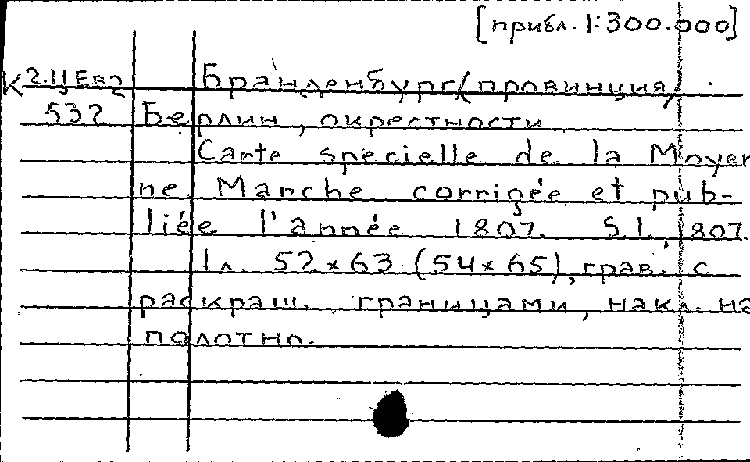 [прибл. 1:300.000]
К 2.ЦЕв2 Бранденбург (провинция)
532 Берлин, окрестности
Carte specielle de la Moyen
ne Marche corrigée et pub-
liée l'année 1807. S.l., 1807.
1 л. 52×63 (54×65), грав. с
раскраш. границами, накл. на
полотно.